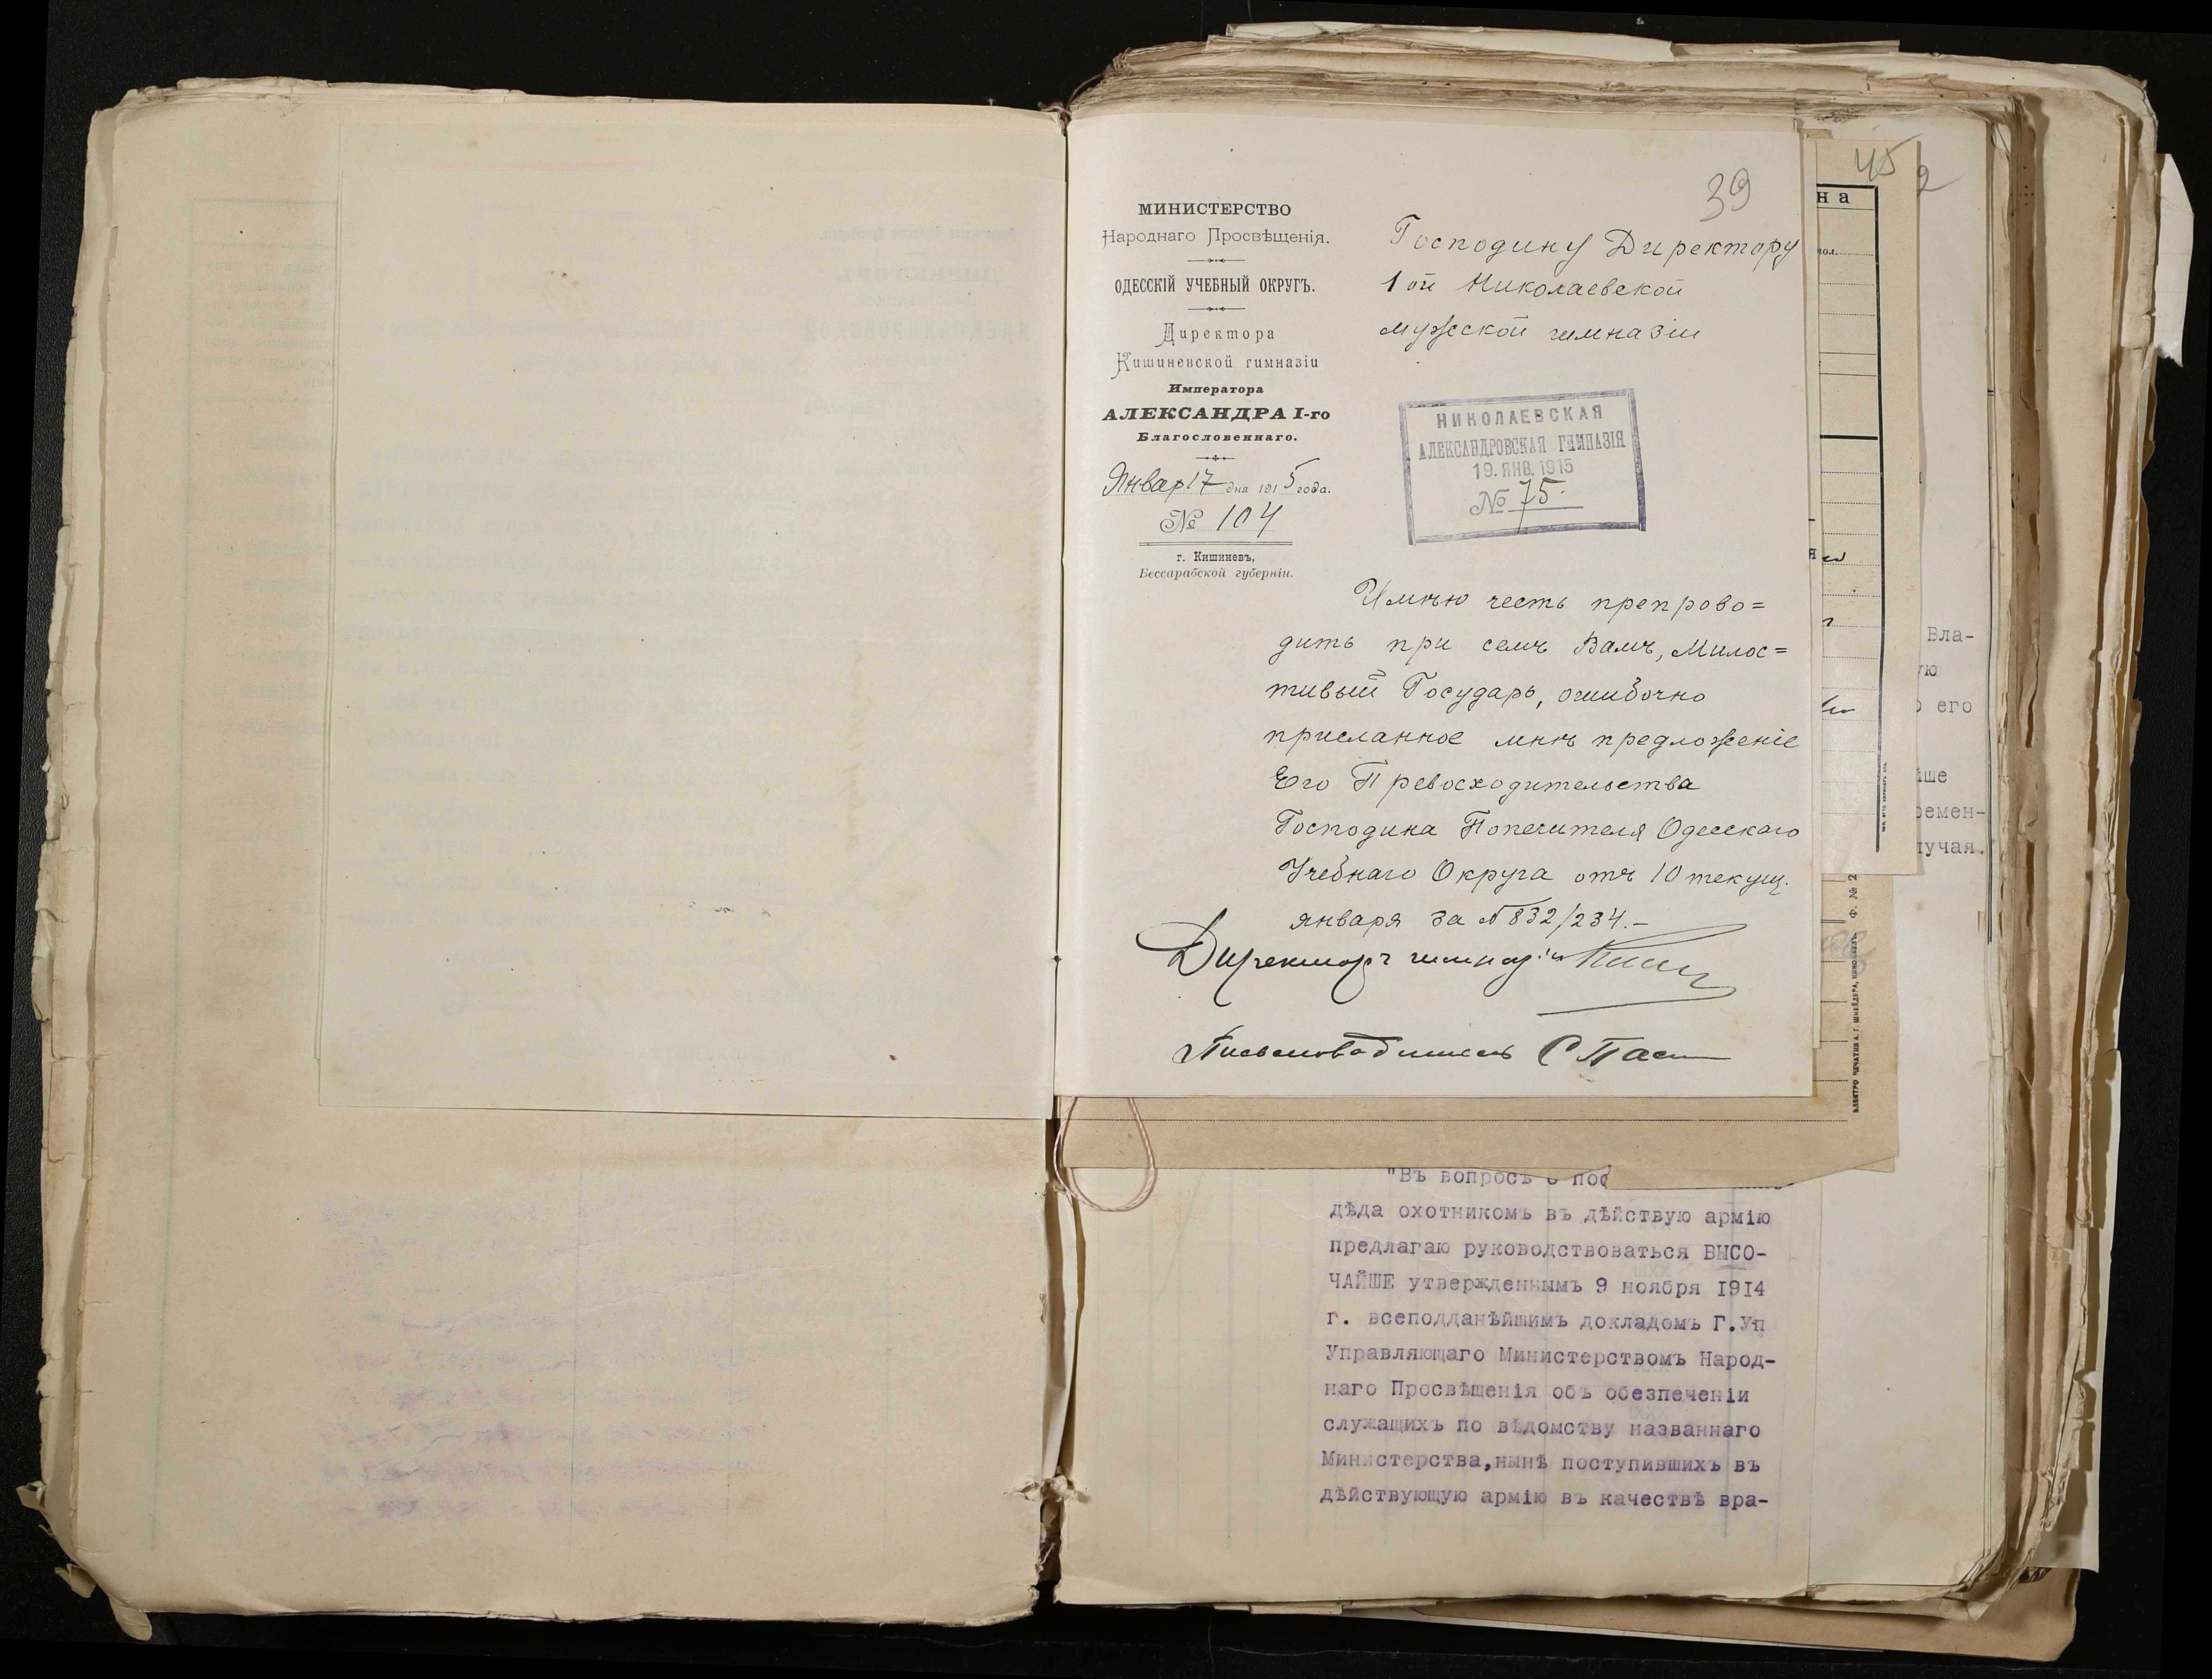 39
МИНИСТЕРСТВО
Народнаго Просвѣщенія.
ОДЕССКІЙ УЧЕБНЫЙ ОКРУГЪ.
Директора
Кишиневской гимназіи
Императора
АЛЕКСАНДРА I-го
Благословеннаго.
Январ 17 дня 1915 года.
№ 104
г. Кишиневъ,
Бессарабской губерніи.
Господину Директору
1ой Николаевской
мужской гимназіи
НИКОЛАЕВСКАЯ
АЛЕКСАНДРОВСКАЯ ГИМНАЗІЯ
19. ЯНВ. 1915
№ 75.
Имѣю честь препрово=
дить при семъ Вамъ, Милос=
тивый Государь, ошибочно
присланное мнѣ предложеніе
Его Превосходительства
Господина Попечителя Одесскаго
Учебнаго Округа отъ 10 текущ.
января за №832/234.-
Директоръ гимназіи
Письмоводитель С
"Въ вопросѣ о пос
дѣда охотникомъ въ дѣйствую армію
предлагаю руководствоваться ВЫСО-
ЧАЙШЕ утвержденнымъ 9 ноября 1914
г. всеподданѣйшимъ докладомъ Г.Уп
Управляющаго Министерствомъ Народ-
наго Просвѣщенія объ обезпеченіи
служащихъ по вѣдомству названнаго
Министерства,нынѣ поступившихъ въ
дѣйствующую армію въ качествѣ вра-
45
2
на
пол.
я
Вла-
ую
о его
йше
ремен-
лучая.
Ф. № 2